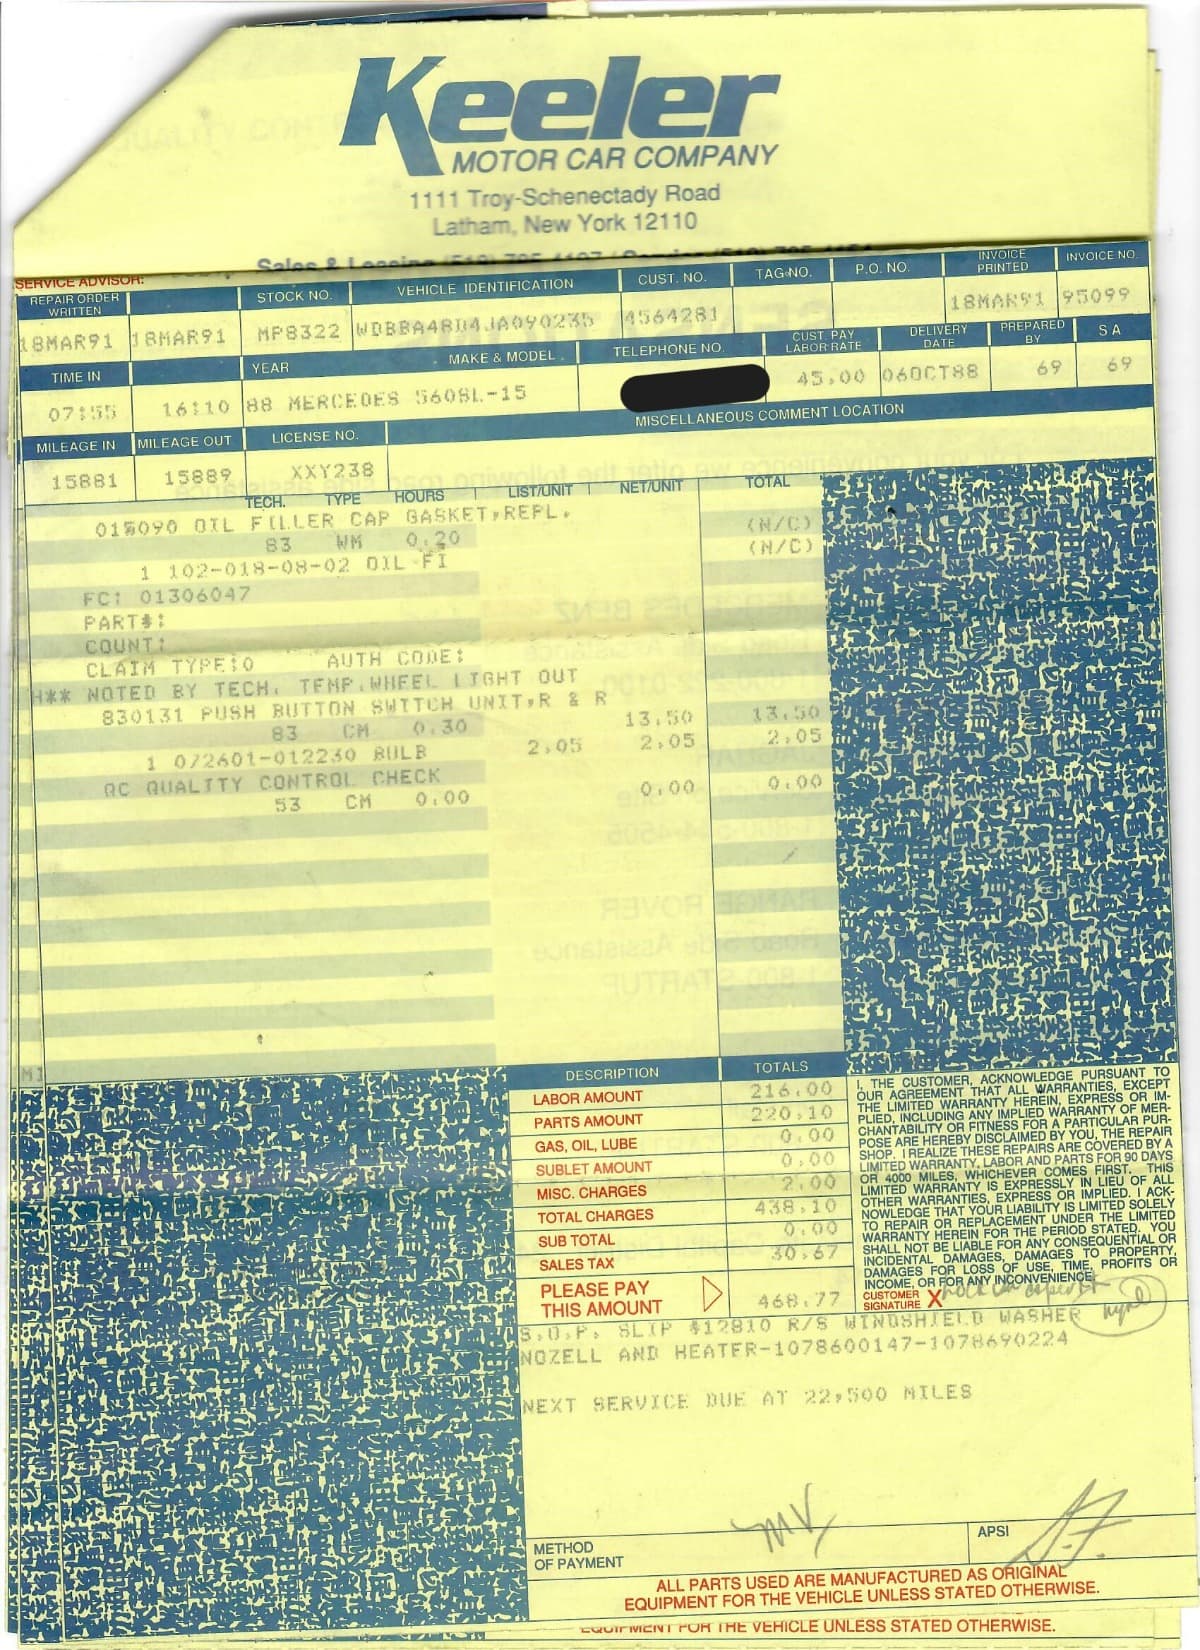 Keeler
MOTOR CAR COMPANY
1111 Troy-Schenectady Road
Latham, New York 12110
Sales & Leasing
SERVICE ADVISOR:
REPAIR ORDER WRITTEN STOCK NO. VEHICLE IDENTIFICATION CUST. NO. TAG NO. P.O. NO. INVOICE PRINTED INVOICE NO.
18MAR91 18MAR91 MP8322 WDBBA48D4JA090235 4564281 18MAR91 95099
TIME IN YEAR MAKE & MODEL TELEPHONE NO. CUST. PAY LABOR RATE DELIVERY DATE PREPARED BY S A
07:55 16:10 88 MERCEDES 560SL-15 45.00 06OCT88 69 69
MILEAGE IN MILEAGE OUT LICENSE NO. MISCELLANEOUS COMMENT LOCATION
15881 15889 XXY238
TECH. TYPE HOURS LIST/UNIT NET/UNIT TOTAL
015090 OIL FILLER CAP GASKET,REPL.
83 WM 0.20 (N/C)
1 102-018-08-02 OIL FI (N/C)
FC: 01306047
PART#:
COUNT:
CLAIM TYPE:0 AUTH CODE:
H** NOTED BY TECH. TEMP.WHEEL LIGHT OUT
830131 PUSH BUTTON SWITCH UNIT,R & R
83 CM 0.30 13.50 13.50
1 072601-012230 BULB 2.05 2.05 2.05
QC QUALITY CONTROL CHECK
53 CM 0.00 0.00 0.00
MI
DESCRIPTION TOTALS
LABOR AMOUNT 216.00
PARTS AMOUNT 220.10
GAS, OIL, LUBE 0.00
SUBLET AMOUNT 0.00
MISC. CHARGES 2.00
TOTAL CHARGES 438.10
SUB TOTAL 0.00
SALES TAX 30.67
PLEASE PAY
THIS AMOUNT 468.77
I, THE CUSTOMER, ACKNOWLEDGE PURSUANT TO
OUR AGREEMENT THAT ALL WARRANTIES, EXCEPT
THE LIMITED WARRANTY HEREIN, EXPRESS OR IM-
PLIED, INCLUDING ANY IMPLIED WARRANTY OF MER-
CHANTABILITY OR FITNESS FOR A PARTICULAR PUR-
POSE ARE HEREBY DISCLAIMED BY YOU, THE REPAIR
SHOP. I REALIZE THESE REPAIRS ARE COVERED BY A
LIMITED WARRANTY, LABOR AND PARTS FOR 90 DAYS
OR 4000 MILES, WHICHEVER COMES FIRST. THIS
LIMITED WARRANTY IS EXPRESSLY IN LIEU OF ALL
OTHER WARRANTIES, EXPRESS OR IMPLIED. I ACK-
NOWLEDGE THAT YOUR LIABILITY IS LIMITED SOLELY
TO REPAIR OR REPLACEMENT UNDER THE LIMITED
WARRANTY HEREIN FOR THE PERIOD STATED. YOU
SHALL NOT BE LIABLE FOR ANY CONSEQUENTIAL OR
INCIDENTAL DAMAGES, DAMAGES TO PROPERTY,
DAMAGES FOR LOSS OF USE, TIME, PROFITS OR
INCOME, OR FOR ANY INCONVENIENCE.
CUSTOMER SIGNATURE X
S.O.P. SLIP #12810 R/S WINDSHIELD WASHER
NOZELL AND HEATER-1078600147-1078690224
NEXT SERVICE DUE AT 22,500 MILES
METHOD OF PAYMENT MV APSI
ALL PARTS USED ARE MANUFACTURED AS ORIGINAL
EQUIPMENT FOR THE VEHICLE UNLESS STATED OTHERWISE.
EQUIPMENT FOR THE VEHICLE UNLESS STATED OTHERWISE.